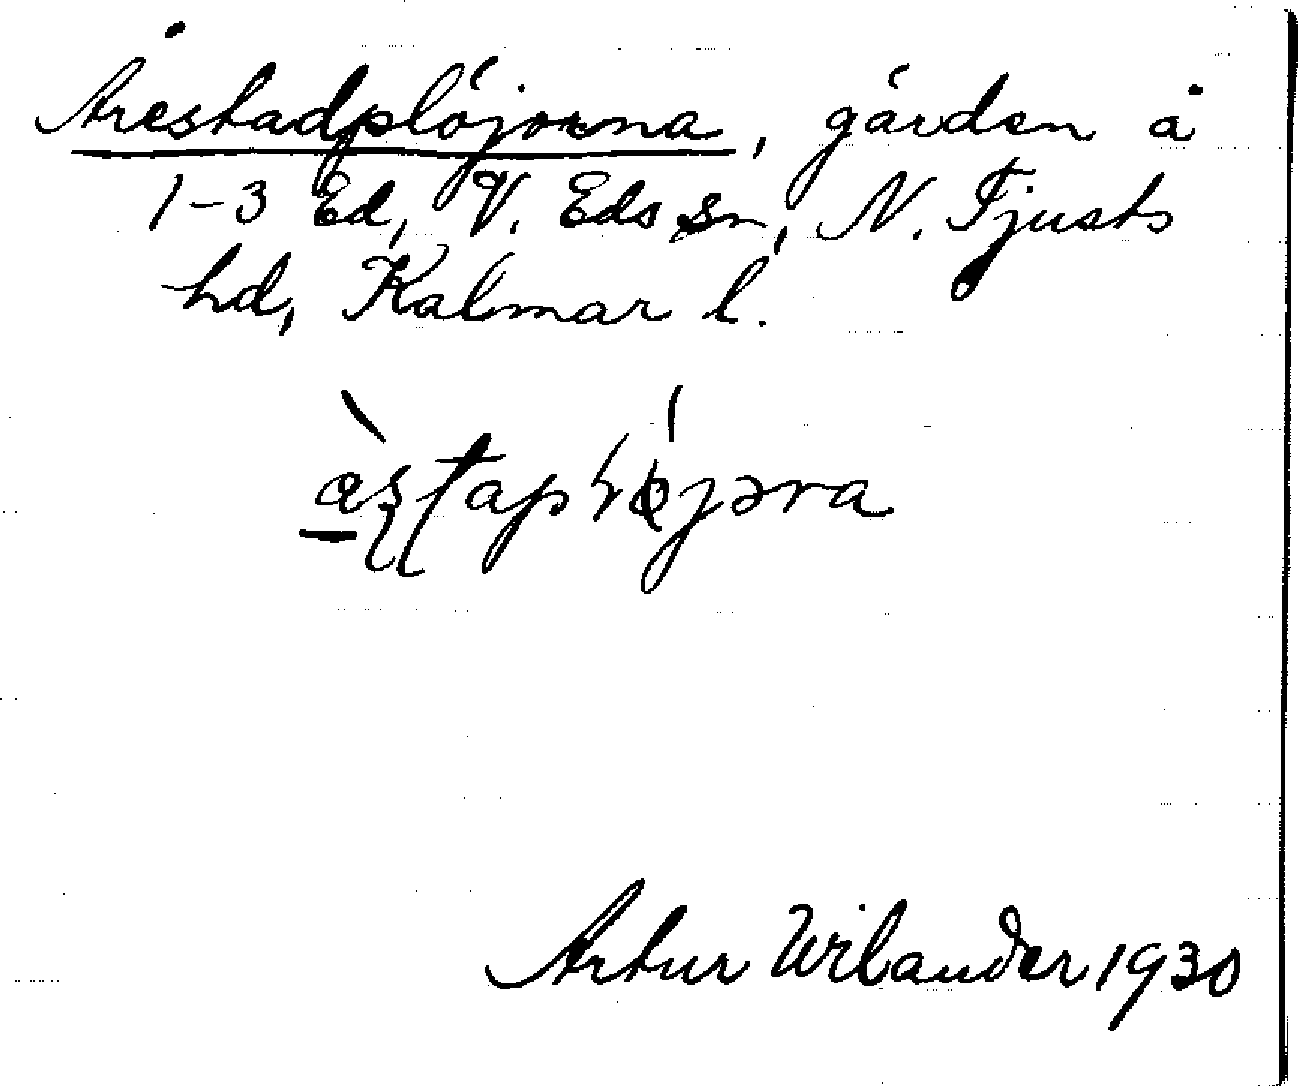 Årestadplöjorna, gärden å
1-3 Ed, V. Eds sn, N. Tjusts
hd, Kalmar l.
Artur Wilander 1930